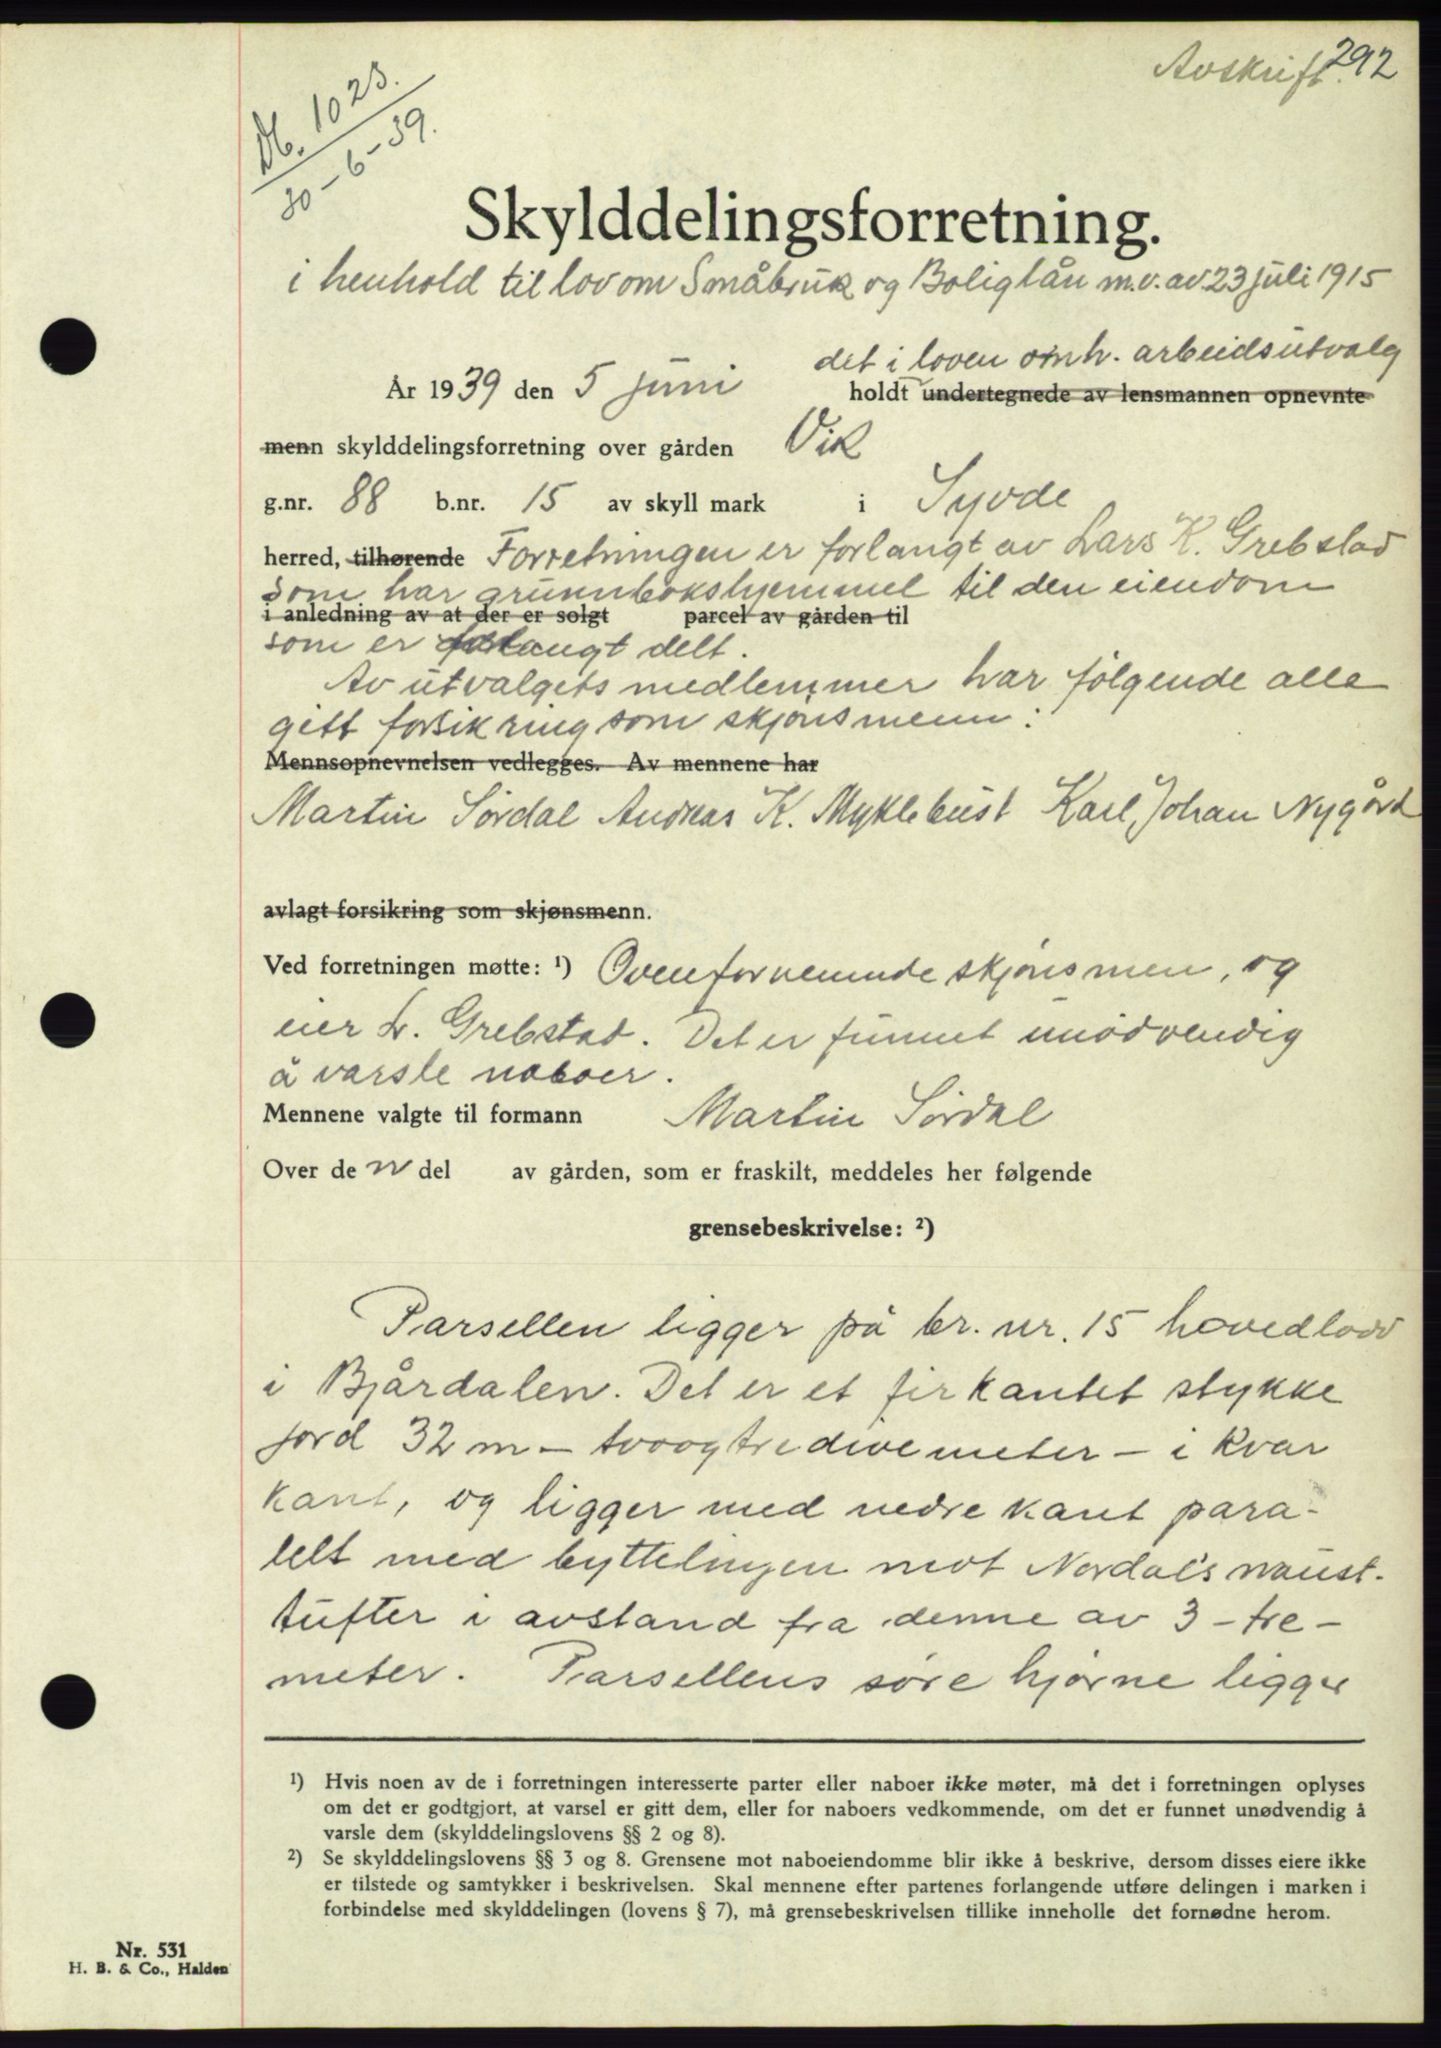 Avskrift. 292
Db. 1023.
30-6-39.
Skylddelingsforretning.
i henhold til lov om Småbruk og Boliglån m.v. av 23 juli 1915
det i loven omh. arbeidsutvalg
År 1939 den 5 juni holdt undertegnede av lensmannen opnevnte
menn skylddelingsforretning over gården Vik
g.nr. 88 b.nr. 15 av skyll mark i Syvde
herred, tilhørende Forretningen er forlangt av Lars K. Grebstad
som har grunnbokshjemmel til den eiendom
i anledning av at der er solgt parcel av gården til
som er forlangt delt.
Av utvalgets medlemmer har følgende alle
gitt forsikring som skjønsmenn:
Mennsopnevnelsen vedlegges. Av mennene har
Martin Sørdal Andreas K. Myklebust Karl Johan Nygård
avlagt forsikring som skjønsmenn.
Ved forretningen møtte: ¹) Ovenfornevnde skjønsmen, og
eier L. Grebstad. Det er funnet unødvendig
å varsle naboer.
Mennene valgte til formann Martin Sørdal
Over de n del av gården, som er fraskilt, meddeles her følgende
grensebeskrivelse: ²)
Parsellen ligger på br. nr. 15 hovedlodd
i Bjårdalen. Det er et firkantet stykke
jord 32 m - toogtredive meter - i kvar
kant, og ligger med nedre kant para-
lelt med byttelinjen mot Nordal's naust-
tufter i avstand fra denne av 3 - tre -
meter. Parsellens søre hjørne ligger
¹) Hvis noen av de i forretningen interesserte parter eller naboer ikke møter, må det i forretningen oplyses
om det er godtgjort, at varsel er gitt dem, eller for naboers vedkommende, om det er funnet unødvendig å
varsle dem (skylddelingslovens §§ 2 og 8).
²) Se skylddelingslovens §§ 3 og 8. Grensene mot naboeiendomme blir ikke å beskrive, dersom disses eiere ikke
er tilstede og samtykker i beskrivelsen. Skal mennene efter partenes forlangende utføre delingen i marken i
forbindelse med skylddelingen (lovens § 7), må grensebeskrivelsen tillike inneholle det fornødne herom.
Nr. 531
H. B. & Co., Halden